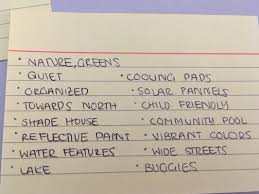 • NATURE, GREENS
• QUIET • COOLING PADS
• ORGANIZED • SOLAR PANNELS
• TOWARDS NORTH • CHILD FRIENDLY
• SHADE HOUSE • COMMUNITY POOL
• REFLECTIVE PAINT • VIBRANT COLORS
• WATER FEATURES • WIDE STREETS
• LAKE • BUGGIES